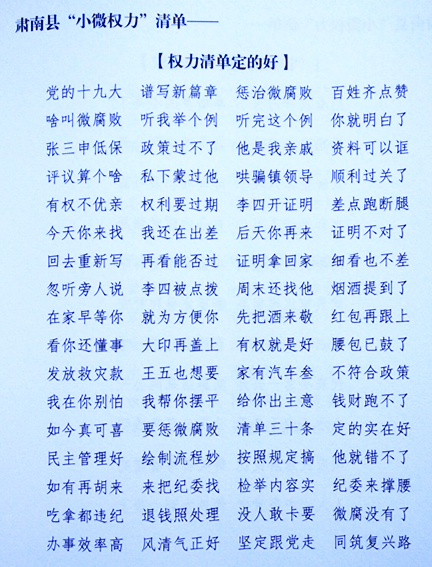 肃南县“小微权力”清单——
【权力清单定的好】
党的十九大 谱写新篇章 惩治微腐败 百姓齐点赞
啥叫微腐败 听我举个例 听完这个例 你就明白了
张三申低保 政策过不了 他是我亲戚 资料可以诓
评议算个啥 私下蒙过他 哄骗镇领导 顺利过关了
有权不优亲 权利要过期 李四开证明 差点跑断腿
今天你来找 我还在出差 后天你再来 证明不对了
回去重新写 再看能否过 证明拿回家 细看也不差
忽听旁人说 李四被点拨 周末还找他 烟酒提到了
在家早等你 就为方便你 先把酒来敬 红包再跟上
看你还懂事 大印再盖上 有权就是好 腰包已鼓了
发放救灾款 王五也想要 家有汽车叁 不符合政策
我在你别怕 我帮你摆平 给你出主意 钱财跑不了
如今真可喜 要惩微腐败 清单三十条 定的实在好
民主管理好 绘制流程妙 按照规定搞 他就错不了
如有再胡来 来把纪委找 检举内容实 纪委来撑腰
吃拿都违纪 退钱照处理 没人敢卡要 微腐没有了
办事效率高 风清气正好 坚定跟党走 同筑复兴路